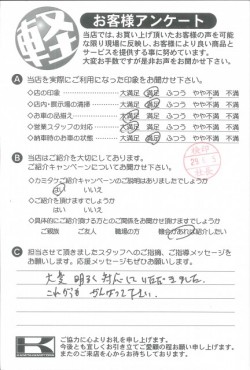 軽
お客様アンケート
当店では、お買い上げ頂いたお客様の声を可能
な限り現場に反映し、お客様により良い商品と
サービスを提供する事に努めています。
大変お手数ですが是非お声をお聞かせ下さい。
A 当店を実際にご利用になった印象をお聞かせ下さい。
◇店の印象 大満足 満足 ふつう やや不満 不満
◇店内・展示場の清掃 大満足 満足 ふつう やや不満 不満
◇お車の品揃え 大満足 満足 ふつう やや不満 不満
◇営業スタッフの対応 大満足 満足 ふつう やや不満 不満
◇納車時のお車の状態 大満足 満足 ふつう やや不満 不満
B 当店はご紹介を大切にしております。
ご紹介キャンペーンについてお聞かせ下さい。
◇カミタケご紹介キャンペーンのご説明はありましたでしょうか
はい いいえ
◇ご紹介を頂けますでしょうか
はい いいえ
◇具体的にご紹介頂ける方とのご関係をお聞かせ頂けますでしょうか
ご親族 ご友人 職場の方 機会があれば紹介したい
C 担当させて頂きましたスタッフへのご指摘、ご指導メッセージを
お願いします。応援メッセージもぜひお願いします。
大変 明るく 対応して いただきました。
これからも がんばって下さい。
K
ご協力に心よりお礼を申し上げます。
今後とも宜しくお引き立てご愛顧の程お願い申し上げます。
またのご来店を心からお待ちしております。